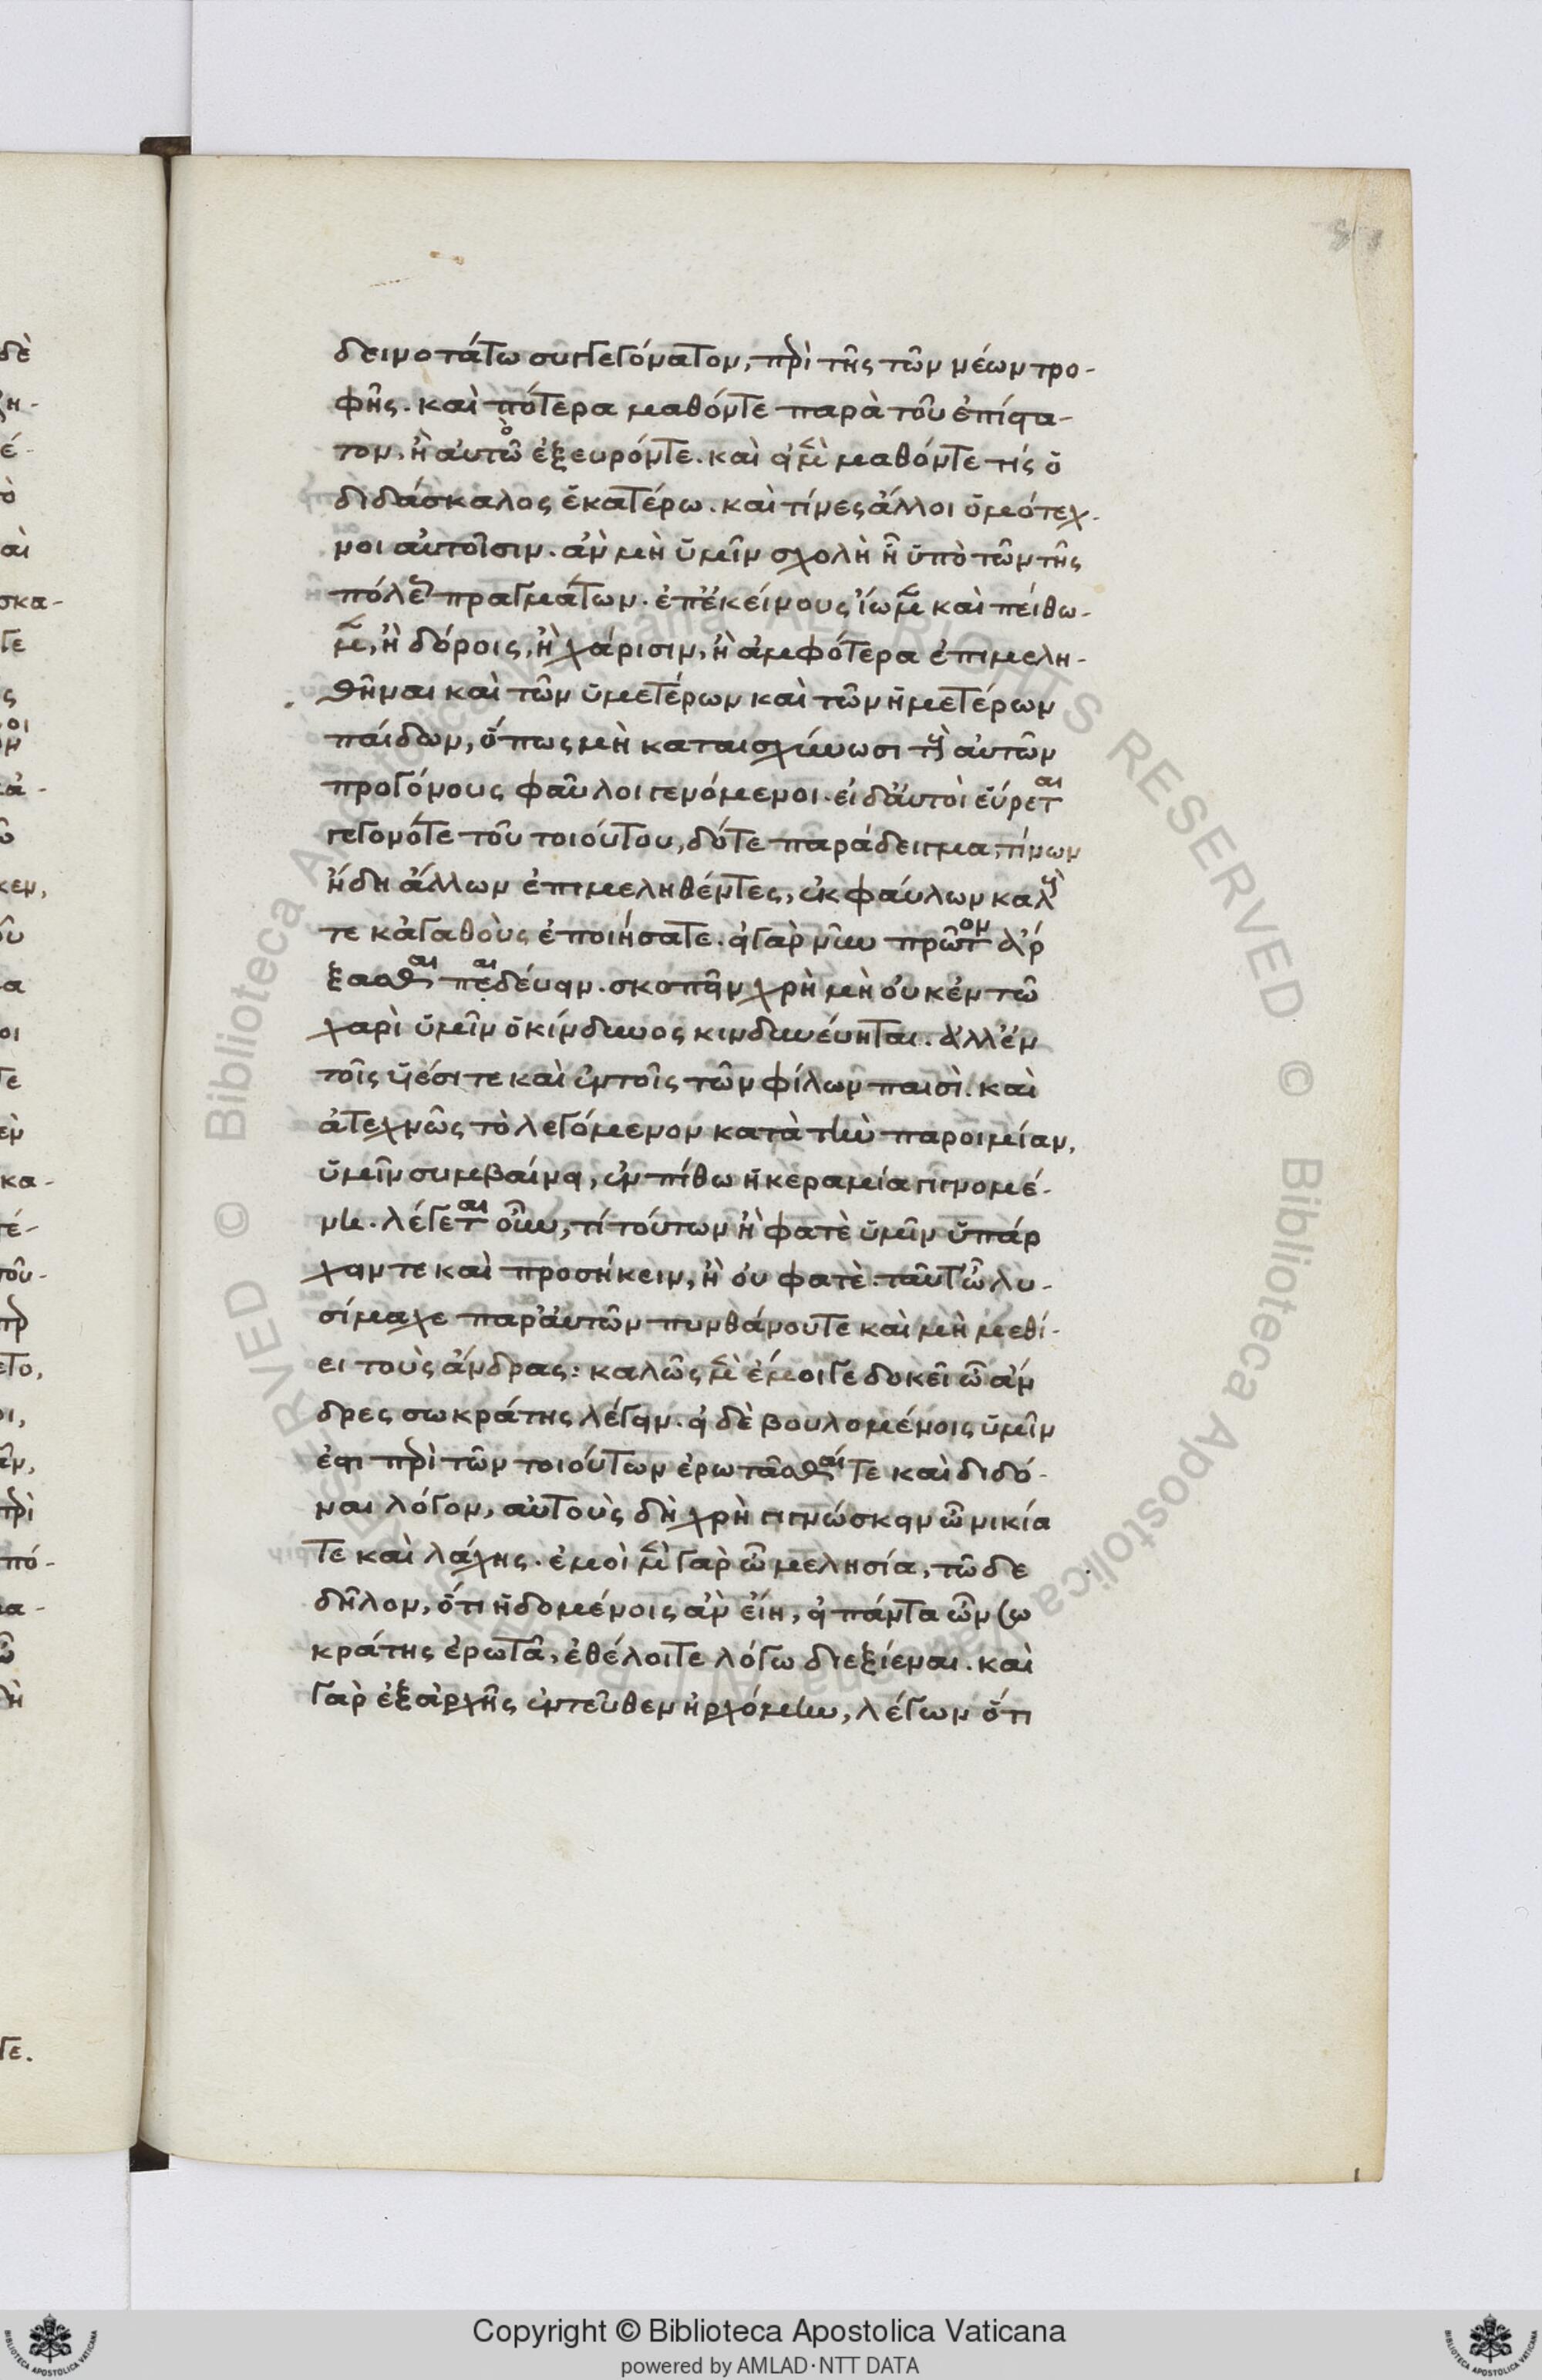 δεινοτάτω συγγεγόνατον, περὶ τῆς τῶν νέων τρο-
φῆς. καὶ πότερα μαθόντε παρὰ τοῦ ἐπίστα-
τον, ἢ αὐτὼ ἐξευρόντε. καὶ εἰ μὲν μαθόντε τίς ὁ
διδάσκαλος ἑκατέρω. καὶ τίνες ἄλλοι ὁμότεχ-
νοι αὐτοῖσιν. ἂν μὴ ὑμῖν σχολὴ ἦ ὑπὸ τῶν τῆς
πόλεως πραγμάτων. ἐπ' ἐκείνους ἴωμεν καὶ πείθω-
μεν, ἢ δόροις, ἢ χάρισιν, ἢ ἀμφότερα ἐπιμελη-
θῆναι καὶ τῶν ὑμετέρων καὶ τῶν ἡμετέρων
παίδων, ὅπως μὴ καταισχύνωσι τοὺς αὐτῶν
προγόνους φαῦλοι γενόμενοι. εἰ δ' αὐτοὶ εὑρεταὶ
γεγονότε τοῦ τοιούτου, δότε παράδειγμα, τίνων
ἤδη ἄλλων ἐπιμεληθέντες, ἐκ φαύλων καλούς
τε κἀγαθοὺς ἐποιήσατε. εἰ γὰρ νῦν πρῶτον ἄρ
ξασθαι παιδεύειν. σκοπεῖν χρὴ μὴ οὐκ ἐν τῶ
χαρὶ ὑμῖν ὁ κίνδυνος κινδυνεύηται. ἀλλ' ἐν
τοῖς ὑέσι τε καὶ ἐν τοῖς τῶν φίλων παισὶ. καὶ
ἀτεχνῶς τὸ λεγόμενον κατὰ τὴν παροιμίαν,
ὑμῖν συμβαίνει, ἐν πίθω ἡ κεραμία γιγνομέ-
νη. λέγεται οὖν, τί τούτων ἢ φατὲ ὑμῖν ὑπάρ
χειν τε καὶ προσήκειν, ἢ οὐ φατὲ. ταῦτ' ὦ λυ-
σίμαχε παρ' αὐτῶν πυνθάνου τε καὶ μὴ μεθί-
ει τοὺς ἄνδρας: καλῶς μὲν ἔμοιγε δοκεῖ ὦ ἄν
δρες σωκράτης λέγειν. εἰ δὲ βουλομένοις ὑμῖν
ἐστι περὶ τῶν τοιούτων ἐρωτᾶσθαί τε καὶ διδό-
ναι λόγον, αὐτοὺς δὴ χρὴ γιγνώσκειν ὦ νικία
τε καὶ λάχης. ἐμοὶ μὲν γὰρ ὦ μελησία, τῶ δε
δῆλον, ὅτι ἡδομένοις ἂν εἴη, εἰ πάντα ὧν σω
κράτης ἐρωτᾶ, ἐθέλοιτε λόγω διεξιέναι. καὶ
γὰρ ἐξαρχῆς ἐντεῦθεν ἠρχόμην, λέγων ὅτι